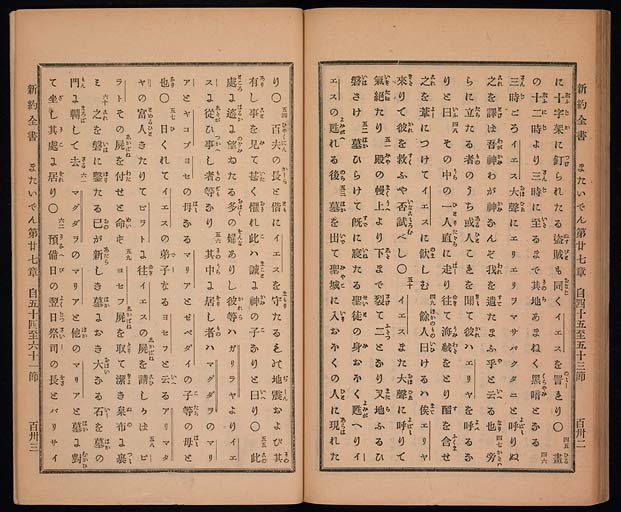 新約全書 またいでん第廿七章 自四十五至五十三節 百卅二
に十字架に釘られたる盗賊も同くイエスを詈しり○ 四五 晝
の十二時より三時に至るまで其地あまねく黒暗となる 四六
三時ごろイエス大聲にエリエリラマサバクタニと呼りぬ
之を譯ば吾神わが神なんぞ我を遺たまふ乎と云る也 四七 旁
らに立たる者のうち或人これを聞て彼ハエリヤを呼るな
りと曰 四八 その中の一人直に走り往て海絨をとり醋を含せ
之を葦につけてイエスに飲しむ 四九 餘の人曰けるハ俟エリヤ
來りて彼を救ふや否試べし○ 五十 イエスまた大聲に呼りて
氣絶たり 五一 殿の幔上より下まで裂て二となり又地ふるひ
磐さけ 五二 墓ひらけて既に寢たる聖徒の身おほく甦へりイ
エスの甦れる後 五三 墓を出て聖城に入おほくの人に現れた
り○ 五四 百夫の長と偕にイエスを守たるもの地震および其
有し事を見て甚く懼れ此ハ誠に神の子なりと曰り○ 五五 此
處に遙に望ゐたる多の婦ありし彼等ハガリラヤよりイエ
スに從ひ事し者等なり 五六 其中に居し者ハマグダラのマリ
アとヤコブヨセの母なるマリアとゼベダイの子等の母と
也○ 五七 日くれてイエスの弟子なるヨセフと云るアリマタ
ヤの富人きたりて 五八 ピラトに往イエスの屍を請しかばピ
ラトその屍を付せと命ず 五九 ヨセフ屍を取て潔き枲布に裹
み 六十 之を磐に鑿たる己が新しき墓におき大なる石を墓の
門に轉して去 六一 マグダラのマリアと他のマリアと墓に對
て坐し其處に居り○ 六二 預備日の翌日祭司の長とパリサイ
新約全書 またいでん第廿七章 自五十四至六十一節 百卅三